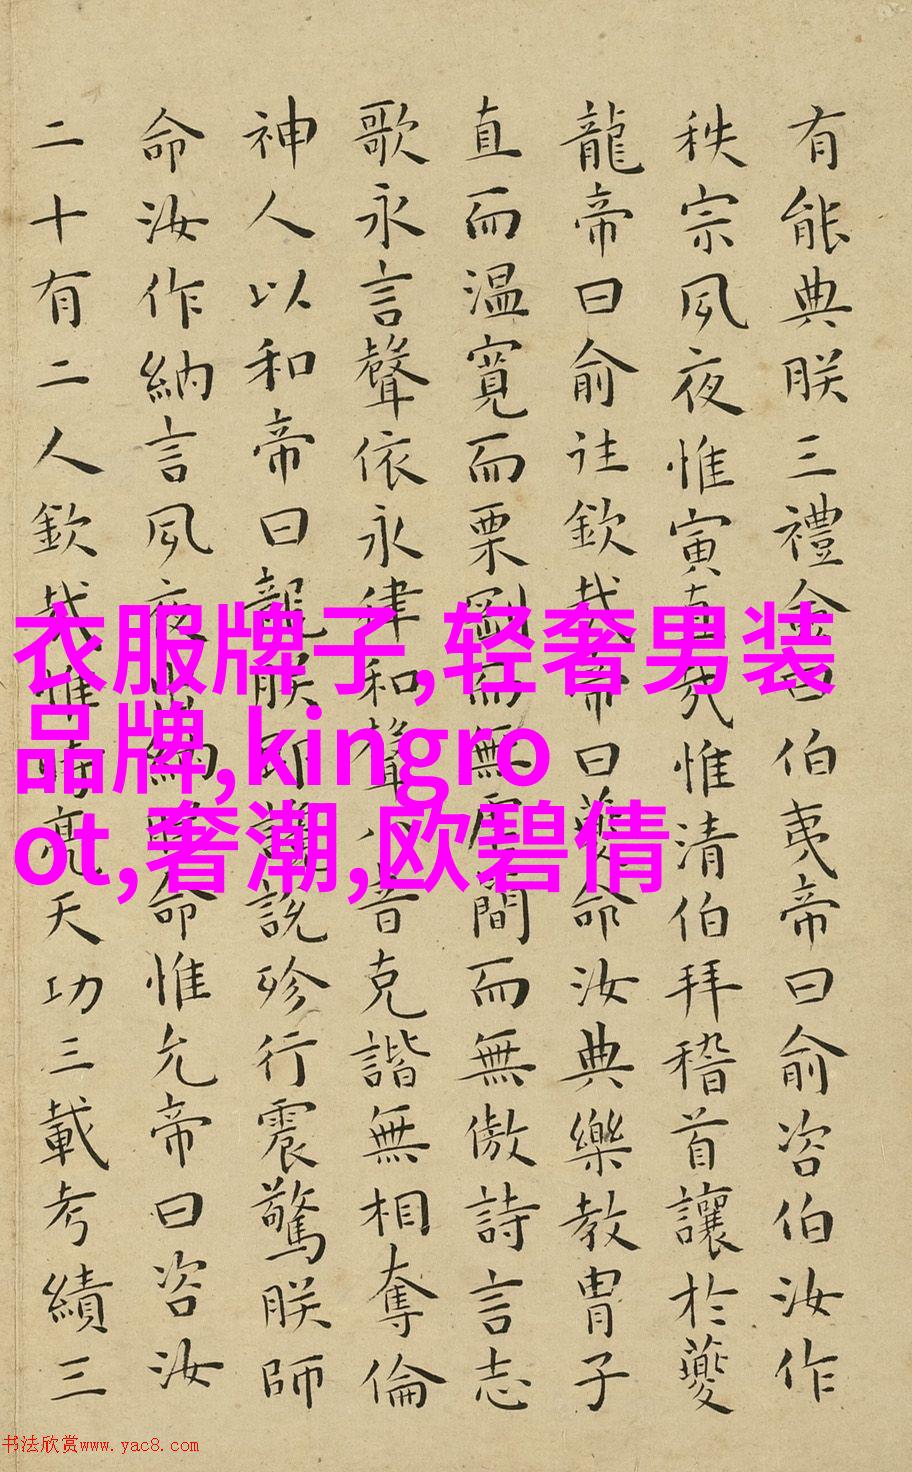 有能典朕三禮僉曰伯夷帝曰俞咨伯汝作
秩宗夙夜惟寅直哉惟清伯拜稽首讓於夔
龍帝曰俞往欽哉帝曰夔命汝典樂教冑子
直而温寬而栗剛而無虐簡而無傲詩言志
歌永言聲依永律和聲八音克諧無相奪倫
神人以和帝曰龍朕堲讒說殄行震驚朕師
命汝作納言夙夜出納朕命惟允帝曰咨汝
二十有二人欽哉惟時亮天功三載考績三
衣服牌子,轻奢男装
品牌,kingro
ot,奢潮,欧碧倩
书法欣赏www.yac8.com